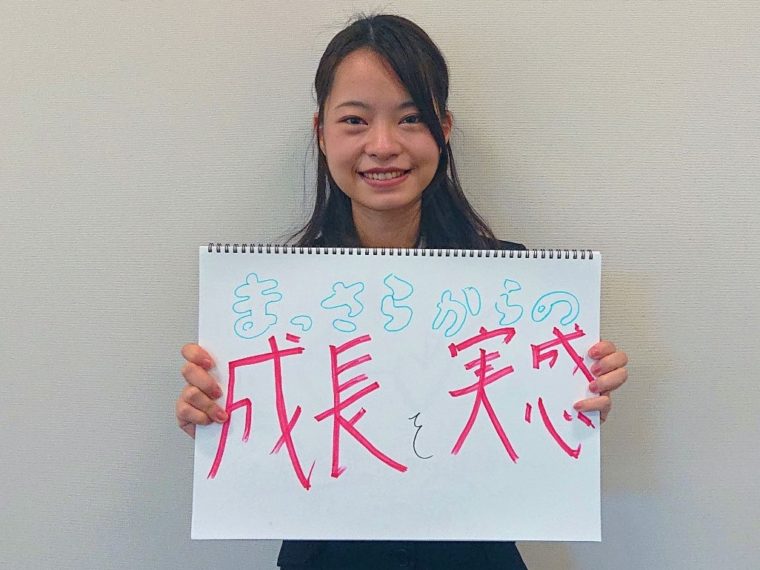 まっさらからの
成長を実感